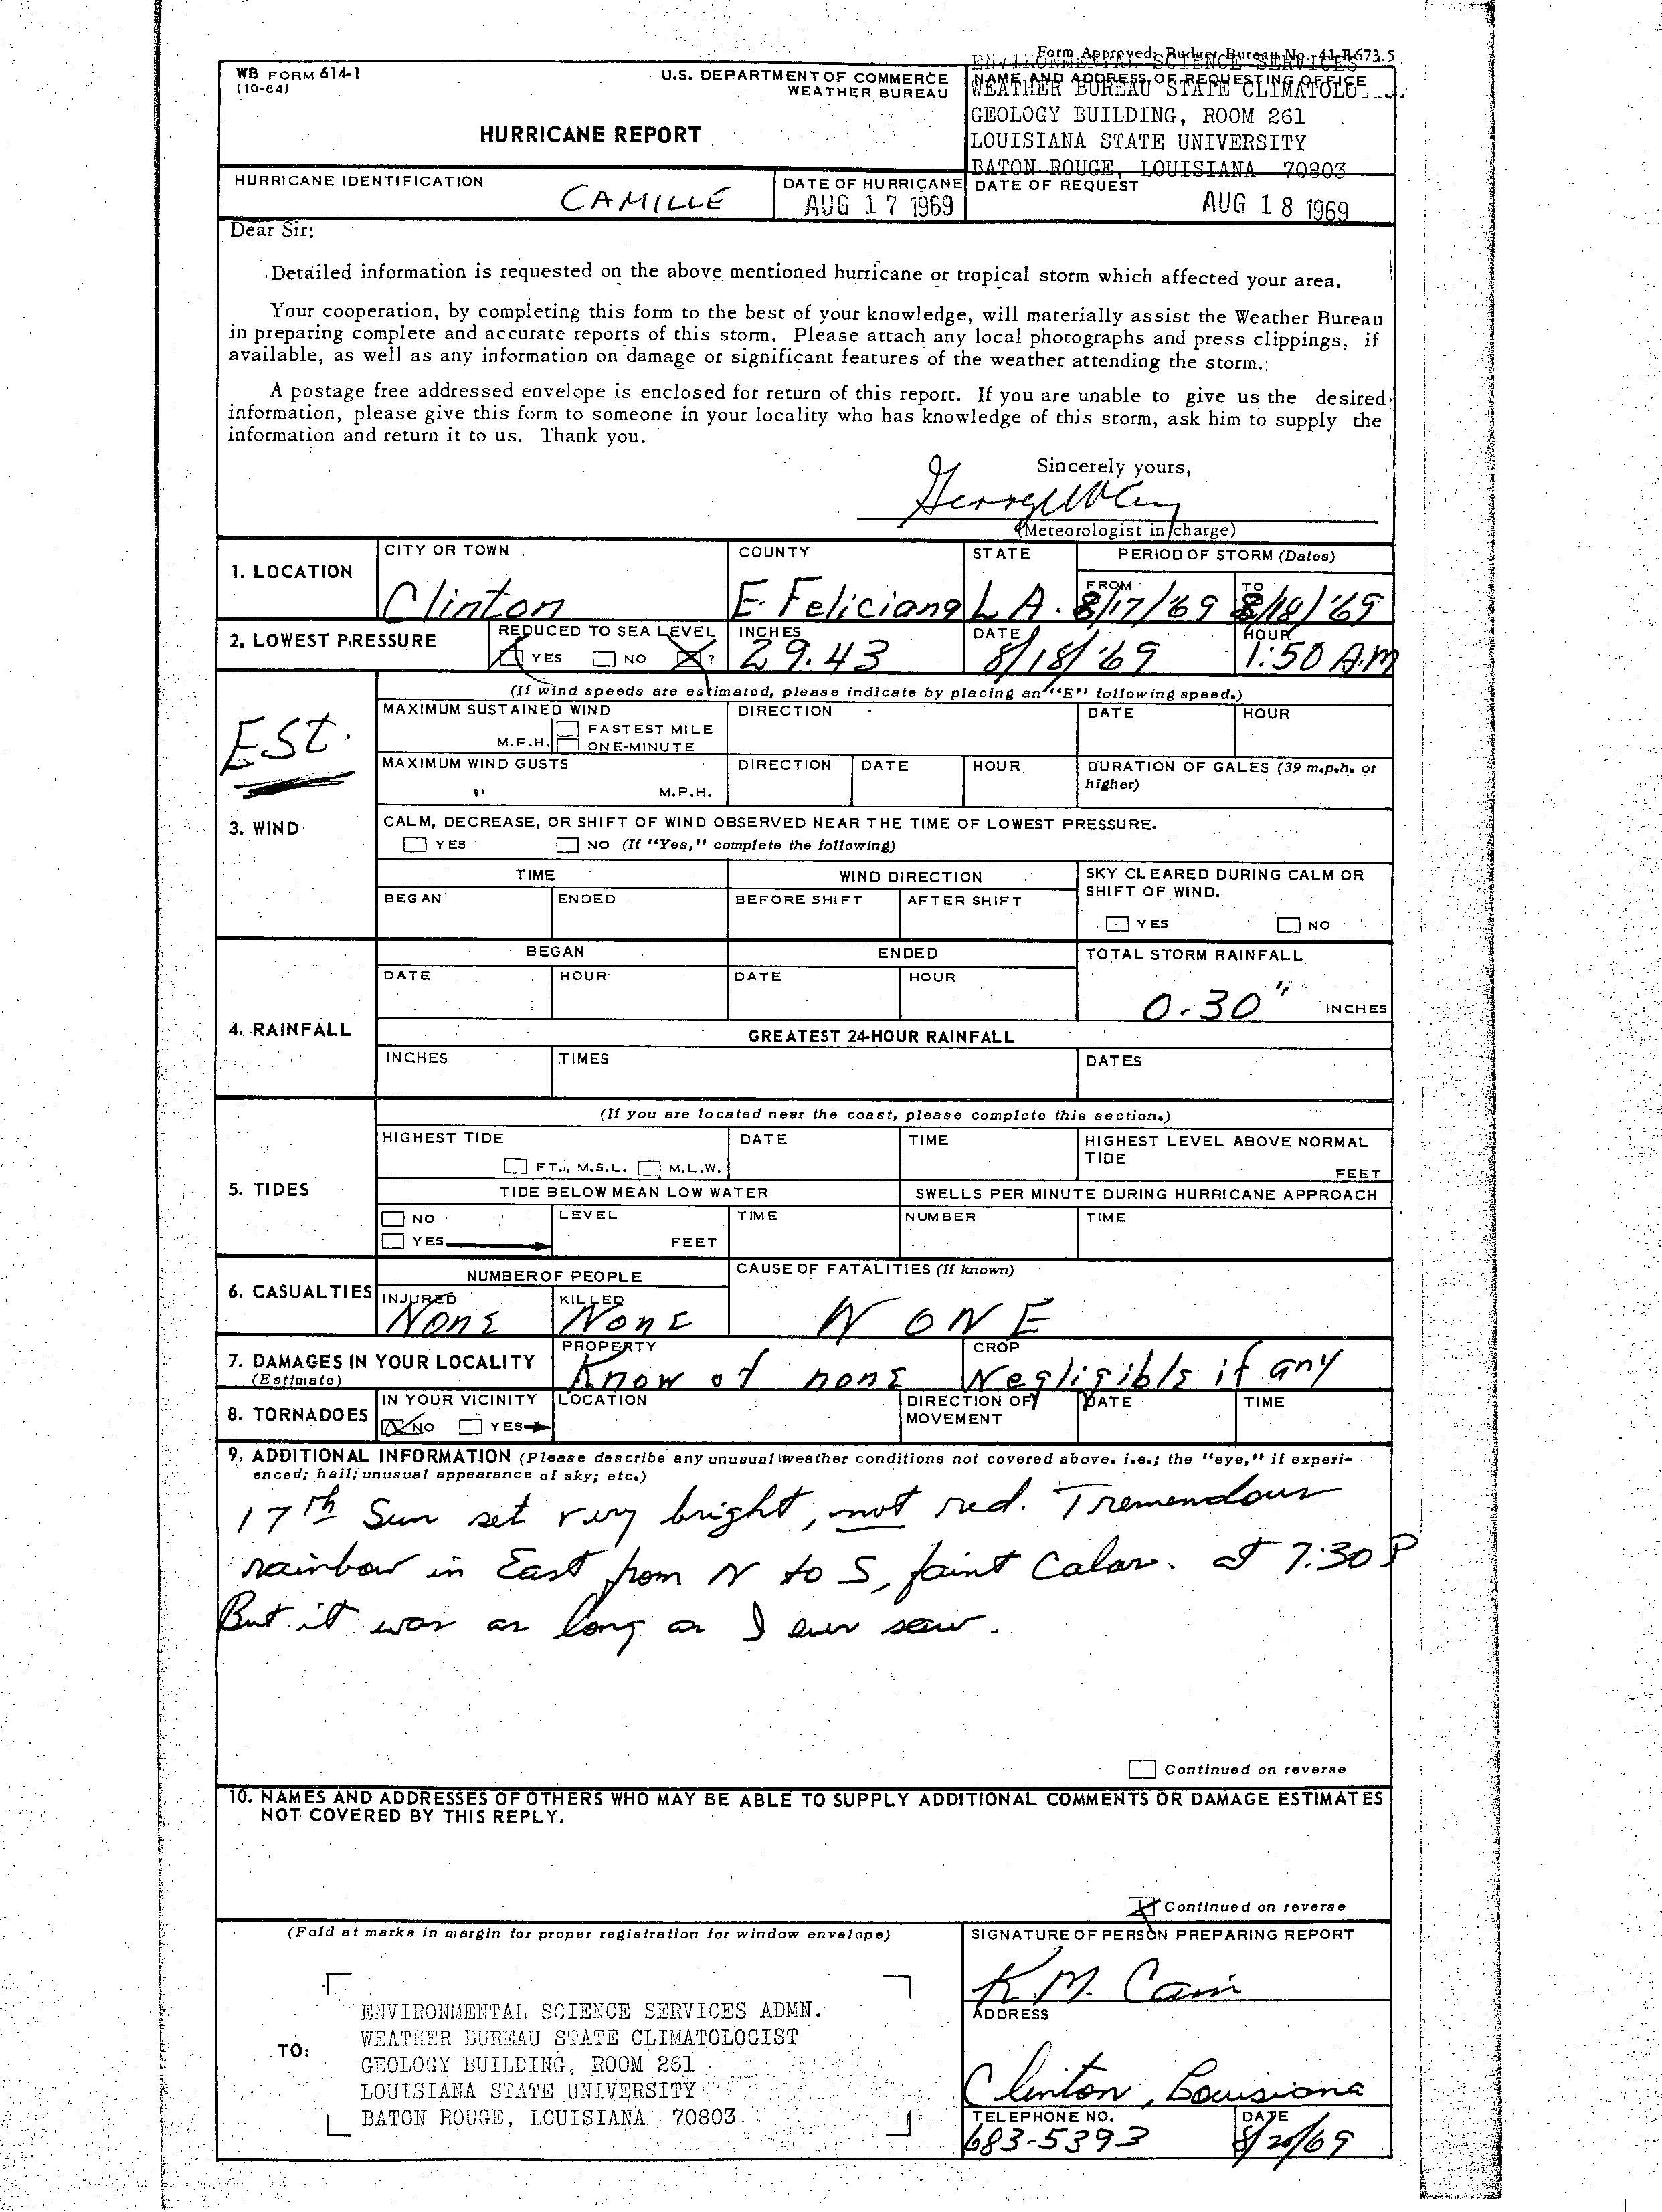 Form Approved: Budget Bureau No. 41-R673.5
WB FORM 614-1
(10-64)
U.S. DEPARTMENT OF COMMERCE
WEATHER BUREAU
HURRICANE REPORT
ENVIRONMENTAL SCIENCE SERVICES
NAME AND ADDRESS OF REQUESTING OFFICE
WEATHER BUREAU STATE
GEOLOGY BUILDING, ROOM 261
LOUISIANA STATE UNIVERSITY
BATON ROUGE, LOUISIANA 70803
HURRICANE IDENTIFICATION
CAMILLE
DATE OF HURRICANE
AUG 17 1969
DATE OF REQUEST
AUG 18 1969
Dear Sir:
Detailed information is requested on the above mentioned hurricane or tropical storm which affected your area.
Your cooperation, by completing this form to the best of your knowledge, will materially assist the Weather Bureau
in preparing complete and accurate reports of this storm. Please attach any local photographs and press clippings, if
available, as well as any information on damage or significant features of the weather attending the storm.
A postage free addressed envelope is enclosed for return of this report. If you are unable to give us the desired
information, please give this form to someone in your locality who has knowledge of this storm, ask him to supply the
information and return it to us. Thank you.
Sincerely yours,
(Meteorologist in charge)
1. LOCATION
CITY OR TOWN
Clinton
COUNTY
E. Feliciana
STATE
LA.
PERIOD OF STORM (Dates)
FROM
8/17/'69
TO
8/18/'69
2. LOWEST PRESSURE
REDUCED TO SEA LEVEL
YES NO ?
INCHES
29.43
DATE
8/18/'69
HOUR
1:50 A.M
(If wind speeds are estimated, please indicate by placing an "E" following speed.)
Est.
3. WIND
MAXIMUM SUSTAINED WIND
FASTEST MILE
M.P.H. ONE-MINUTE
DIRECTION
DATE
HOUR
MAXIMUM WIND GUSTS
" M.P.H.
DIRECTION
DATE
HOUR
DURATION OF GALES (39 m.p.h. or
higher)
CALM, DECREASE, OR SHIFT OF WIND OBSERVED NEAR THE TIME OF LOWEST PRESSURE.
YES NO (If "Yes," complete the following)
TIME
WIND DIRECTION
SKY CLEARED DURING CALM OR
SHIFT OF WIND.
BEGAN
ENDED
BEFORE SHIFT
AFTER SHIFT
YES NO
4. RAINFALL
BEGAN
ENDED
TOTAL STORM RAINFALL
DATE
HOUR
DATE
HOUR
0.30" INCHES
GREATEST 24-HOUR RAINFALL
INCHES
TIMES
DATES
5. TIDES
(If you are located near the coast, please complete this section.)
HIGHEST TIDE
FT., M.S.L. M.L.W.
DATE
TIME
HIGHEST LEVEL ABOVE NORMAL
TIDE
FEET
TIDE BELOW MEAN LOW WATER
SWELLS PER MINUTE DURING HURRICANE APPROACH
NO
YES
LEVEL
FEET
TIME
NUMBER
TIME
6. CASUALTIES
NUMBER OF PEOPLE
CAUSE OF FATALITIES (If known)
INJURED
None
KILLED
None
NONE
7. DAMAGES IN YOUR LOCALITY
(Estimate)
PROPERTY
Know of none
CROP
Negligible if any
8. TORNADOES
IN YOUR VICINITY
NO YES
LOCATION
DIRECTION OF
MOVEMENT
DATE
TIME
9. ADDITIONAL INFORMATION (Please describe any unusual weather conditions not covered above. i.e.; the "eye," if experi-
enced; hail; unusual appearance of sky; etc.)
17th Sun set very bright, not red. Tremendous
rainbow in East from N to S, faint Color. at 7:30 P
But it was as long as I ever saw.
Continued on reverse
10. NAMES AND ADDRESSES OF OTHERS WHO MAY BE ABLE TO SUPPLY ADDITIONAL COMMENTS OR DAMAGE ESTIMATES
NOT COVERED BY THIS REPLY.
Continued on reverse
(Fold at marks in margin for proper registration for window envelope)
TO:
ENVIRONMENTAL SCIENCE SERVICES ADMN.
WEATHER BUREAU STATE CLIMATOLOGIST
GEOLOGY BUILDING, ROOM 261
LOUISIANA STATE UNIVERSITY
BATON ROUGE, LOUISIANA 70803
SIGNATURE OF PERSON PREPARING REPORT
K.M. Cain
ADDRESS
Clinton, Louisiana
TELEPHONE NO.
683-5393
DATE
8/20/69